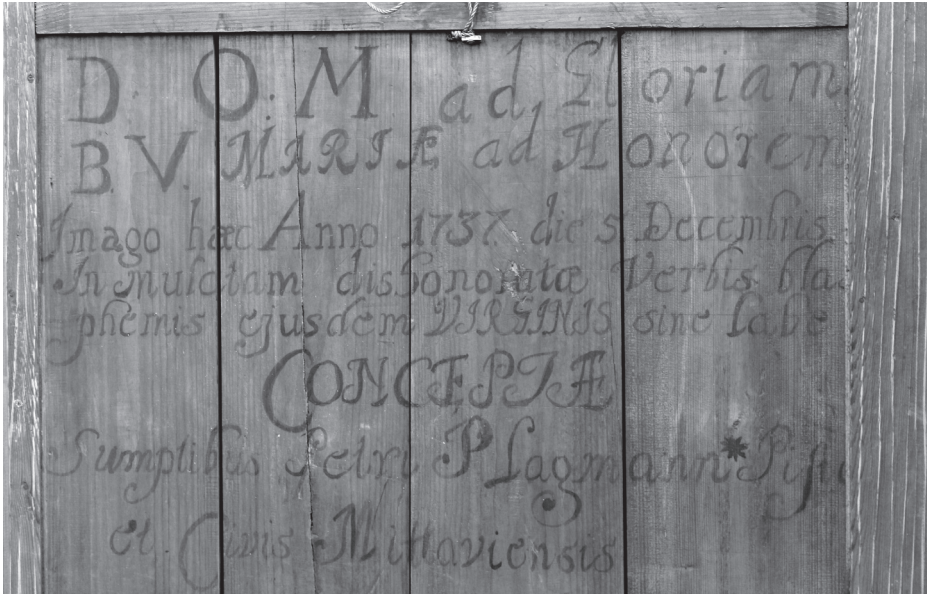 D. O. M ad Gloriam
B. V. MARIÆ ad Honorem
Imago hæc Anno 1737 die 5 Decembris
In mulctam dishonoratæ Verbis blas
phemis ejusdem VIRGINIS sine labe
CONCEPTÆ
Sumptibus Petri PLagmann Pisto
et Civis Mittaviensis